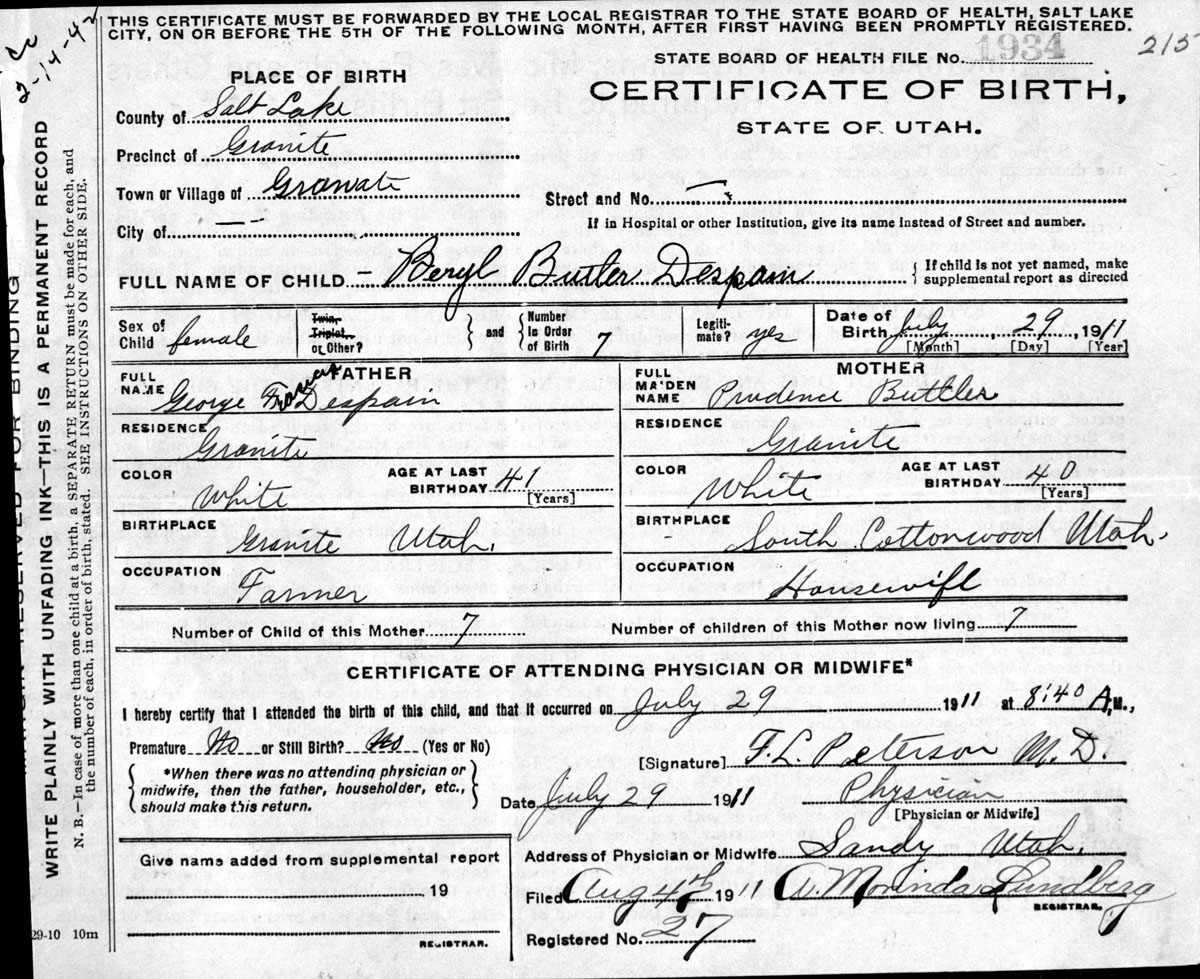 THIS CERTIFICATE MUST BE FORWARDED BY THE LOCAL REGISTRAR TO THE STATE BOARD OF HEALTH, SALT LAKE
CITY, ON OR BEFORE THE 5TH OF THE FOLLOWING MONTH, AFTER FIRST HAVING BEEN PROMPTLY REGISTERED.
2-14-42
215
STATE BOARD OF HEALTH FILE No. 1934
PLACE OF BIRTH
CERTIFICATE OF BIRTH,
STATE OF UTAH.
County of Salt Lake
Precinct of Granite
Town or Village of Granate
Street and No. —
City of —
If in Hospital or other Institution, give its name instead of Street and number.
FULL NAME OF CHILD - Beryl Butler Despain
{ If child is not yet named, make
supplemental report as directed
Sex of
Child female
Twin,
Triplet,
or Other?
} and {
Number
In Order
of Birth 7
Legiti-
mate? yes
Date of
Birth July 29, 1911
[Month] [Day] [Year]
FATHER
FULL
NAME George Francis Despain
RESIDENCE
Granite
COLOR White
AGE AT LAST
BIRTHDAY 41
[Years]
BIRTHPLACE
Granite Utah.
OCCUPATION
Farmer
MOTHER
FULL
MAIDEN
NAME Prudence Buttler
RESIDENCE
Granite
COLOR White
AGE AT LAST
BIRTHDAY 40
[Years]
BIRTHPLACE
South Cottonwood Utah.
OCCUPATION
Housewife
Number of Child of this Mother 7 Number of children of this Mother now living 7
CERTIFICATE OF ATTENDING PHYSICIAN OR MIDWIFE*
I hereby certify that I attended the birth of this child, and that it occurred on July 29 1911 at 8:40 A.M.,
Premature No or Still Birth? No (Yes or No)
{ *When there was no attending physician or
midwife, then the father, householder, etc.,
should make this return. }
[Signature] F.L. Peterson M.D.
Date July 29 1911 Physician
[Physician or Midwife]
Give name added from supplemental report
19
REGISTRAR.
Address of Physician or Midwife Sandy Utah.
Filed Aug 4th 1911 Morinda Lundberg
REGISTRAR.
Registered No. 27
29-10 10m
MARGIN RESERVED FOR BINDING
WRITE PLAINLY WITH UNFADING INK—THIS IS A PERMANENT RECORD
N. B.—In case of more than one child at a birth, a SEPARATE RETURN must be made for each, and
the number of each, in order of birth, stated. SEE INSTRUCTIONS ON OTHER SIDE.